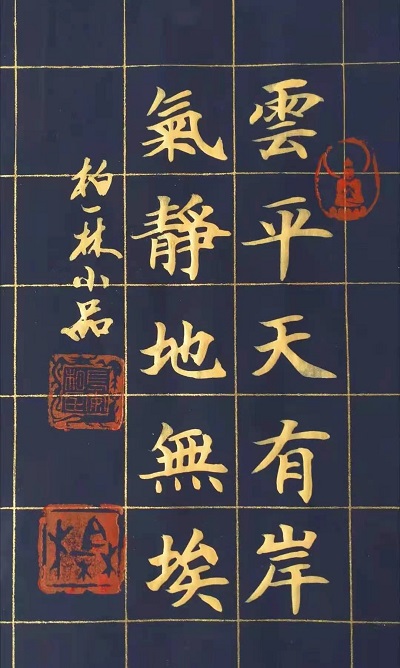 雲平天有岸
氣靜地無埃
柏一林小品